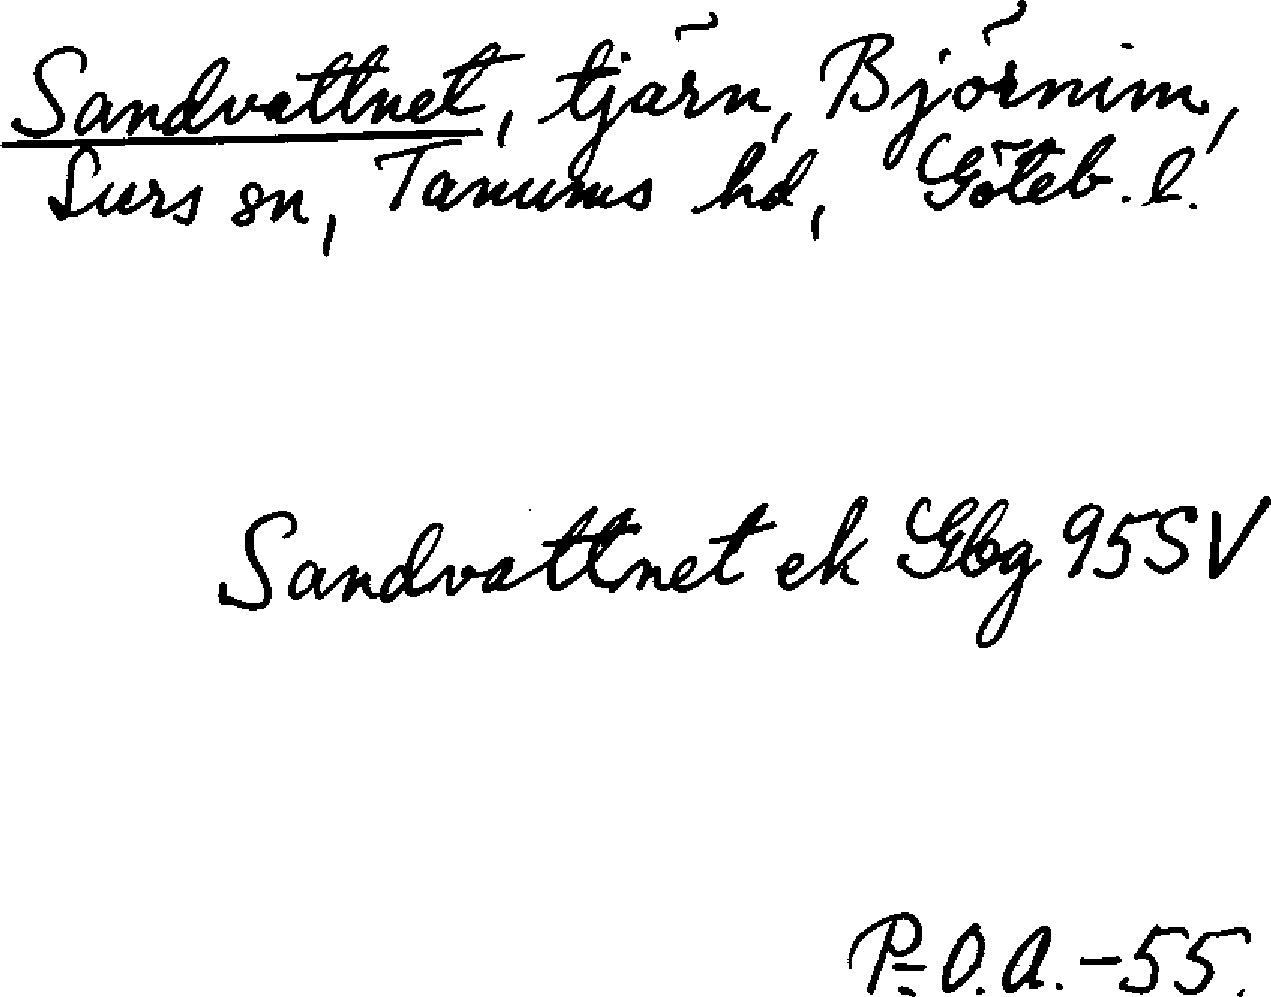 Sandvattnet, tjärn, Björnim,
Lurs sn, Tanums hd, Göteb. l.
Sandvattnet ek Gbg 95SV
P-O.A. -55.